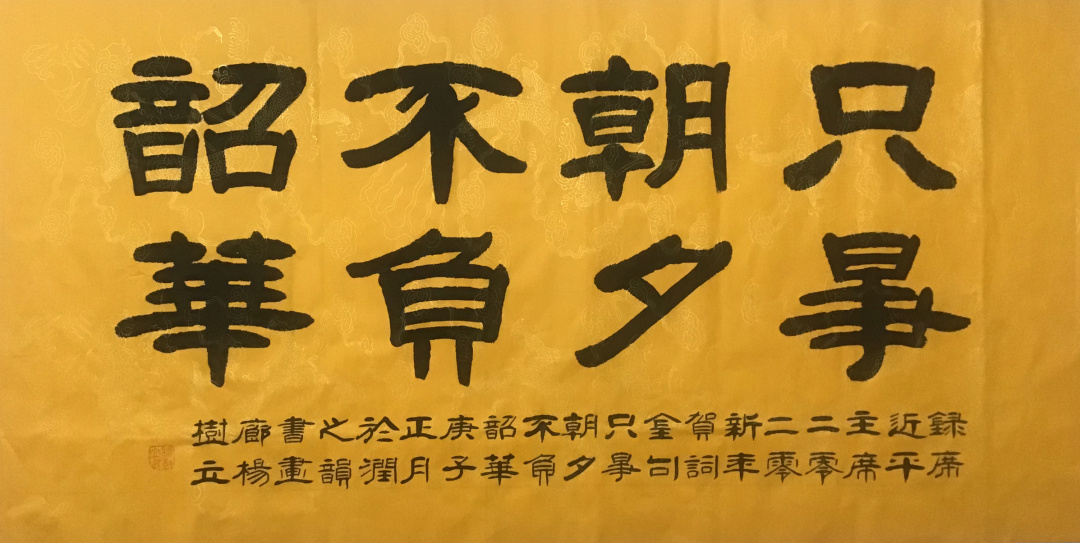 只爭
朝夕
不負
韶華
録席
近平
主席
二零
二零
新年
賀詞
金句
只爭
朝夕
不負
韶華
庚子
正月
於潤
之韻
書畫
廊楊
樹立